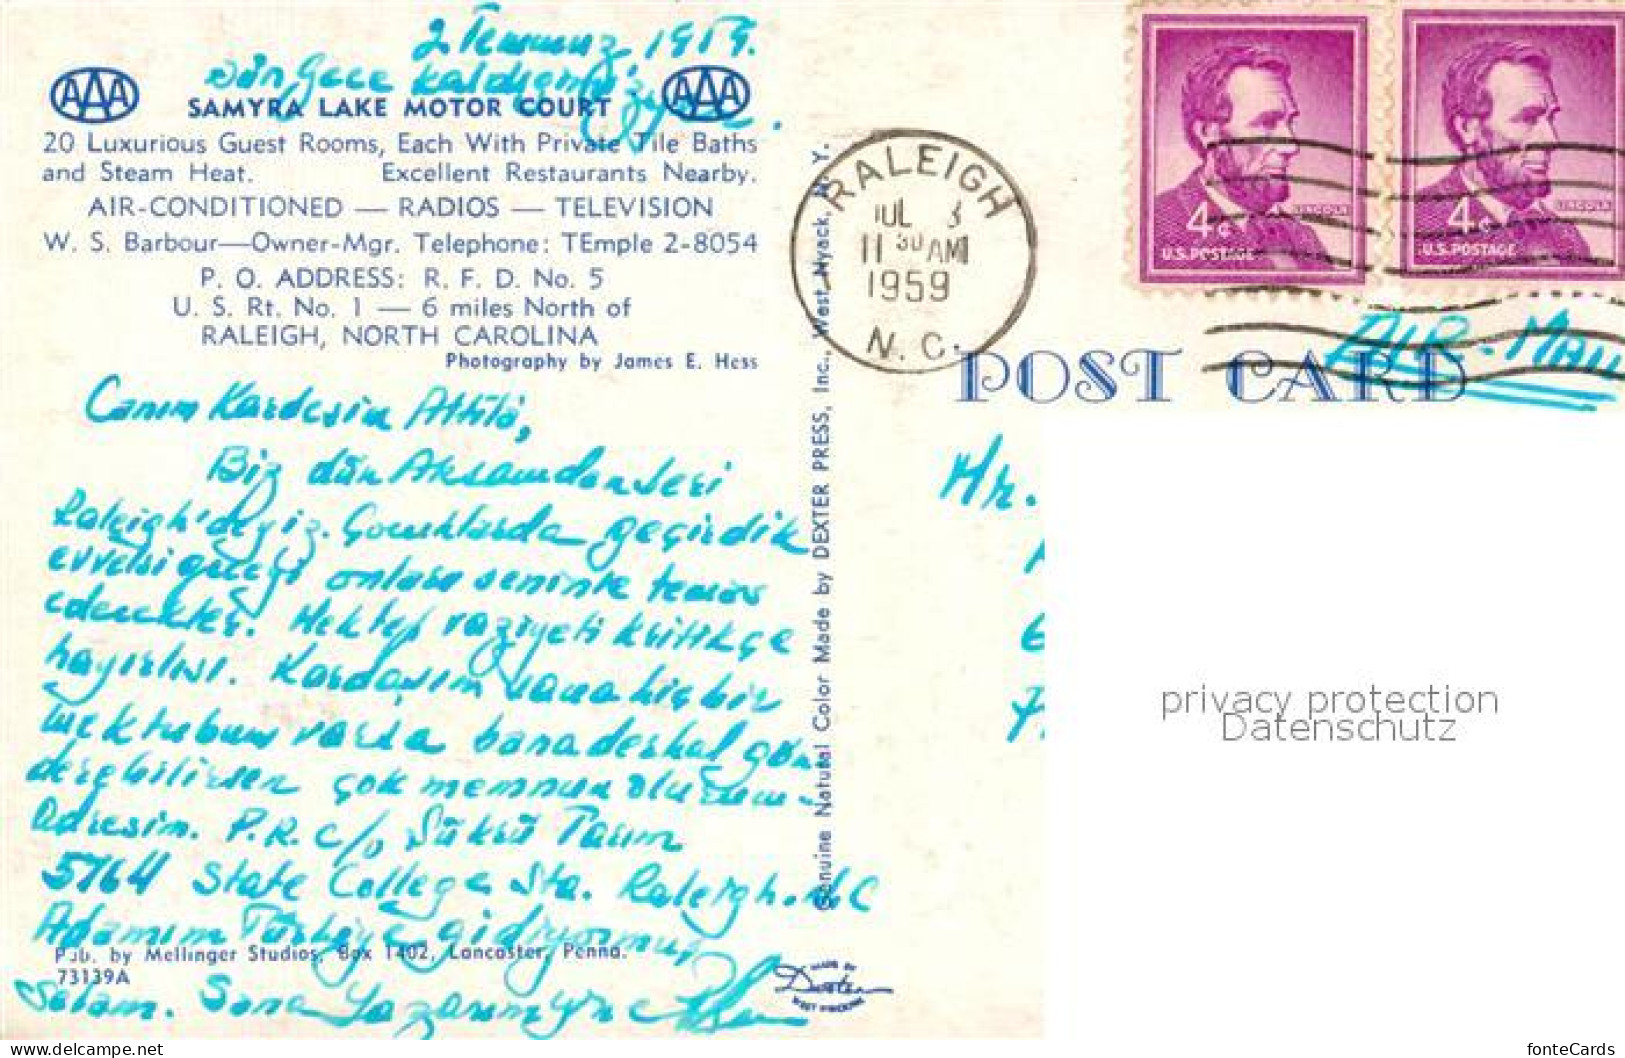 2 Temmuz, 1959.
Dün Gece kaldığımız
AAA AAA
SAMYRA LAKE MOTOR COURT
20 Luxurious Guest Rooms, Each With Private Tile Baths
and Steam Heat. Excellent Restaurants Nearby.
AIR-CONDITIONED — RADIOS — TELEVISION
W. S. Barbour—Owner-Mgr. Telephone: TEmple 2-8054
P. O. ADDRESS: R. F. D. No. 5
U. S. Rt. No. 1 — 6 miles North of
RALEIGH, NORTH CAROLINA
Photography by James E. Hess
Canım Kardeşim Attilâ,
Biz dün Akşamdan beri
Raleigh'deyiz. Çocuklarda geçirdik
evvelsi geceyi onlar seninle temas
edecekler. Mektep vaziyeti kritikçe
hayırlısı. Kardaşım sana hiç bir
mektubum varsa bana derhal gön
derebilirsen çok memnun olurum.
Adresim. P.R. c/o Şükrü Tarım
5764 State College Sta. Raleigh. N.C
Adamım Türkiye gidiyormuş,
Selam. Sana Yazarım yine
Pub. by Mellinger Studios, Box 1402, Lancaster, Penna.
73139A
Genuine Natural Color Made by DEXTER PRESS, Inc., West Nyack, N. Y.
MADE BY
Dexter
WEST NYACK
RALEIGH
JUL 3
11 30 AM
1959
N. C.
4¢
LINCOLN
U.S. POSTAGE
4¢
LINCOLN
U.S. POSTAGE
AIR-MAIL
POST CARD
Mr.
privacy protection
Datenschutz
https://www.delcampe.net
fonteCards